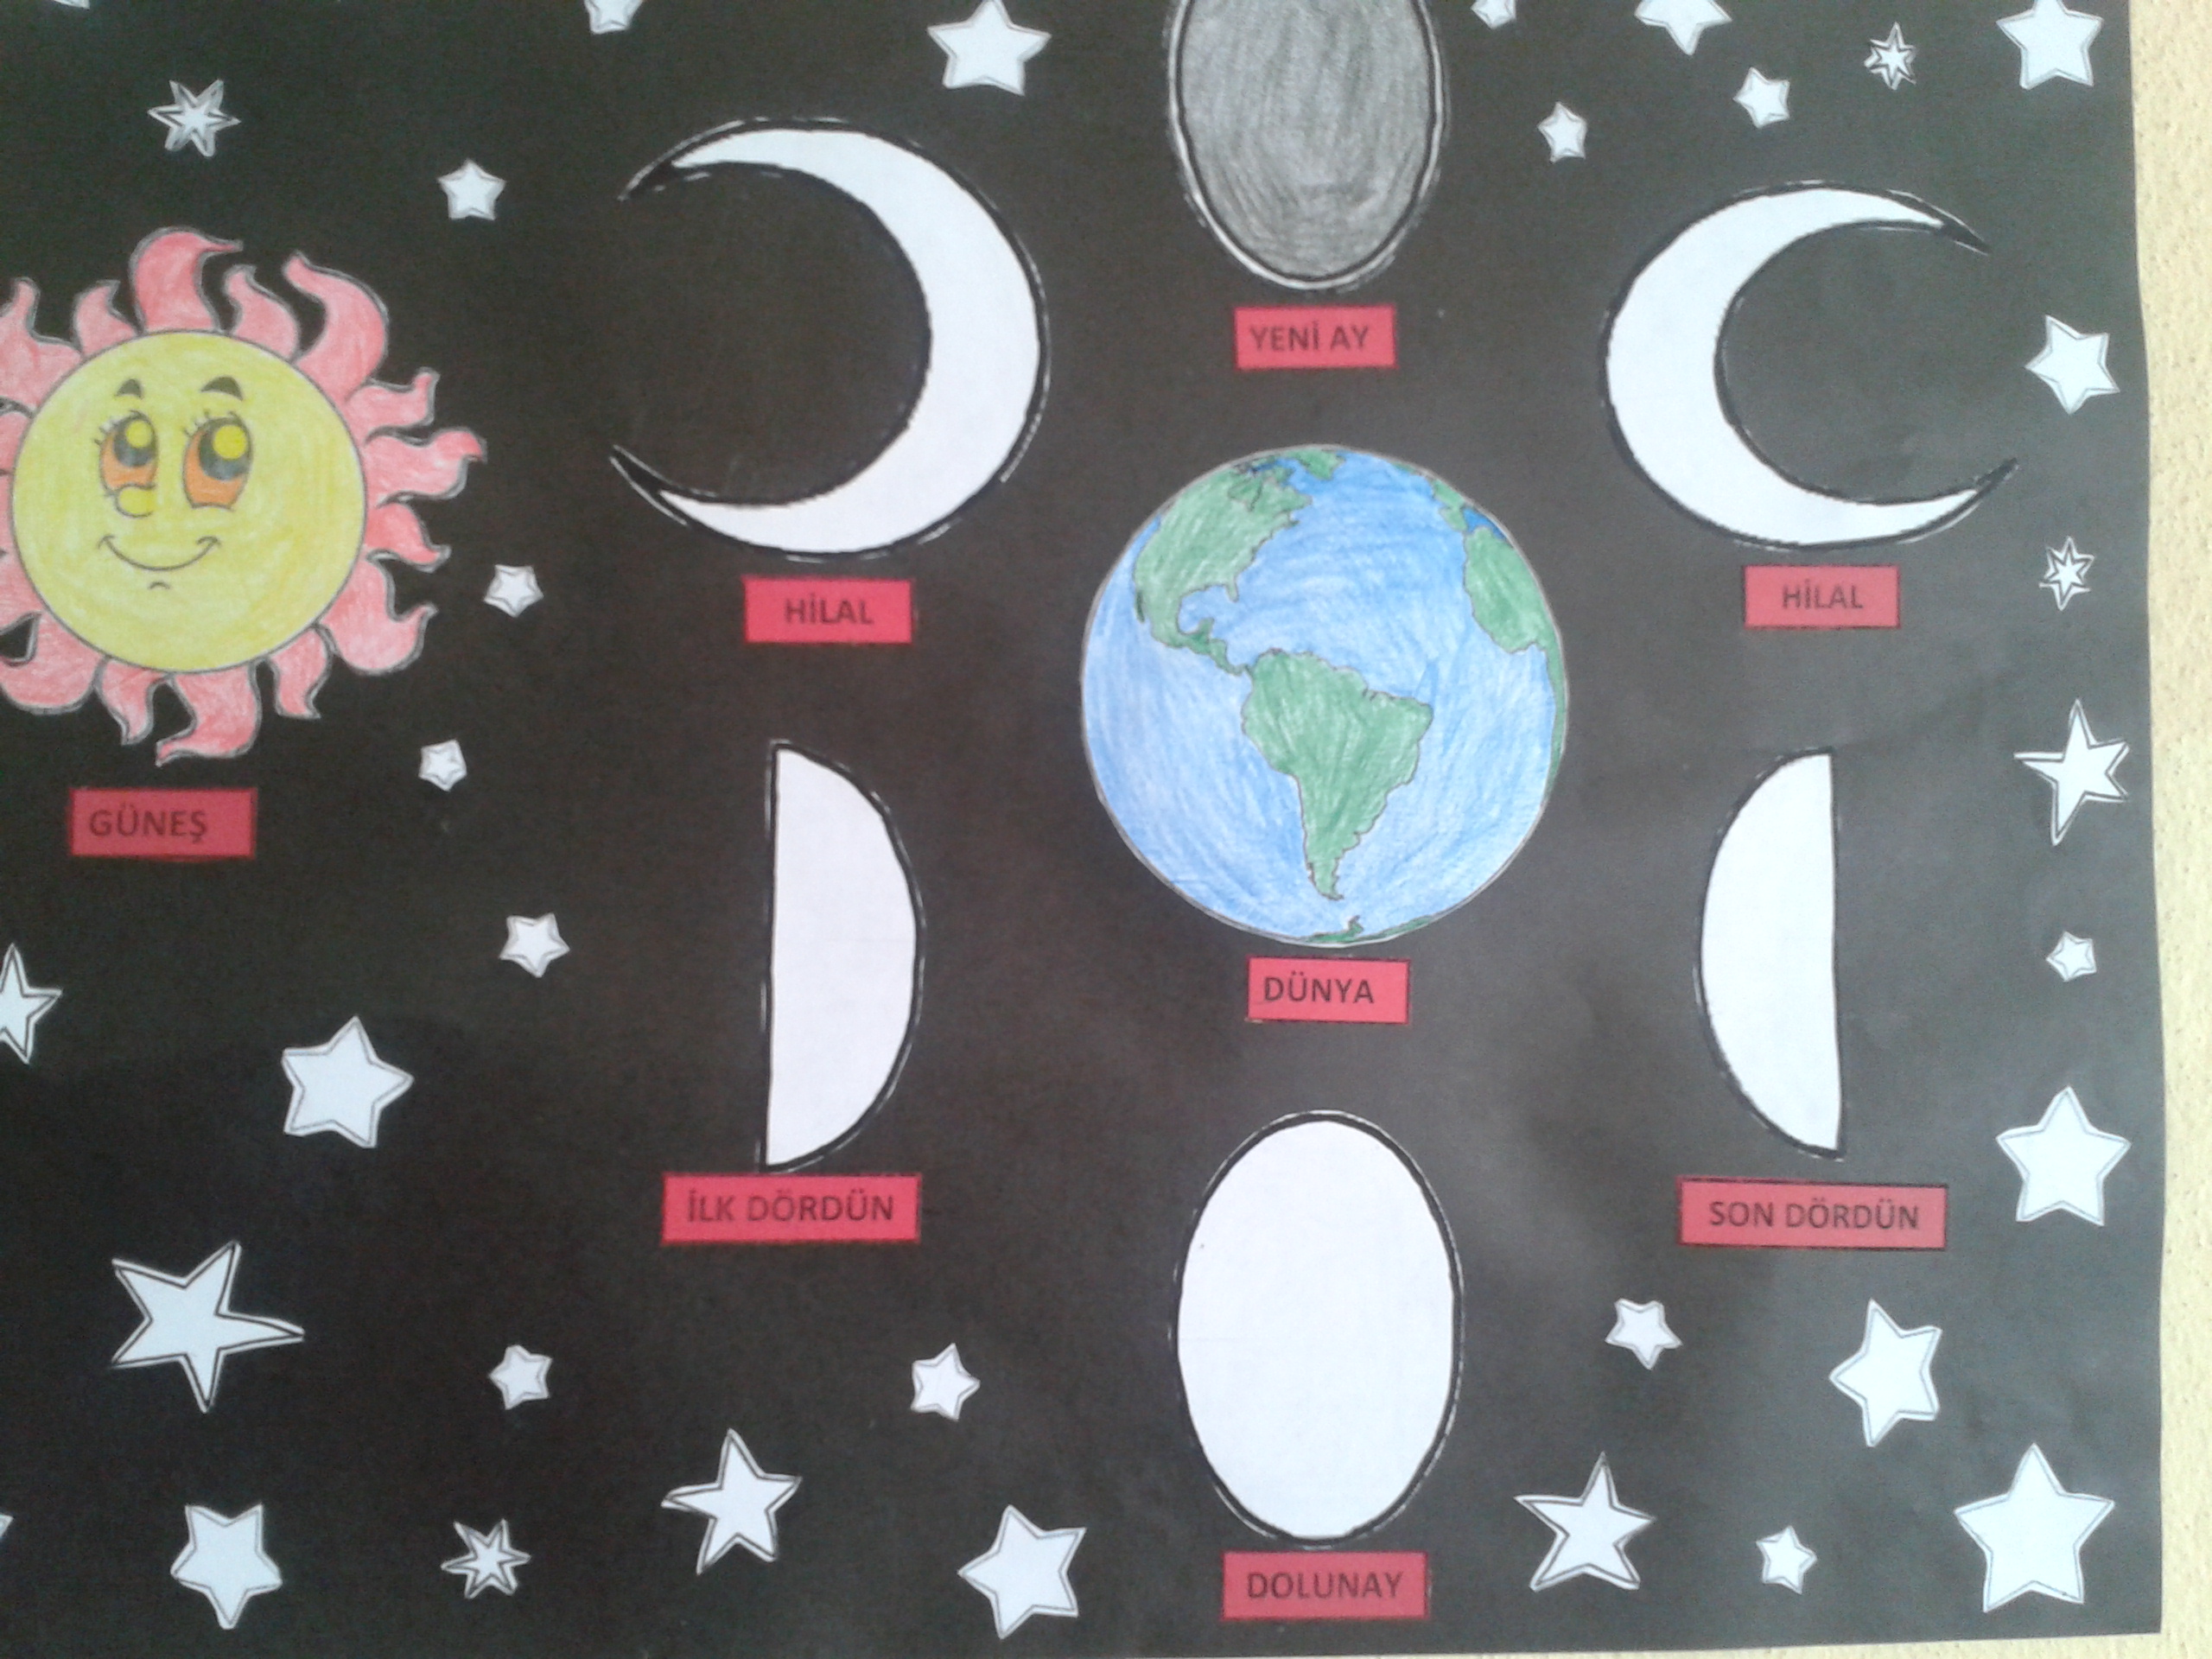 YENİ AY
HİLAL
HİLAL
GÜNEŞ
DÜNYA
İLK DÖRDÜN
SON DÖRDÜN
DOLUNAY